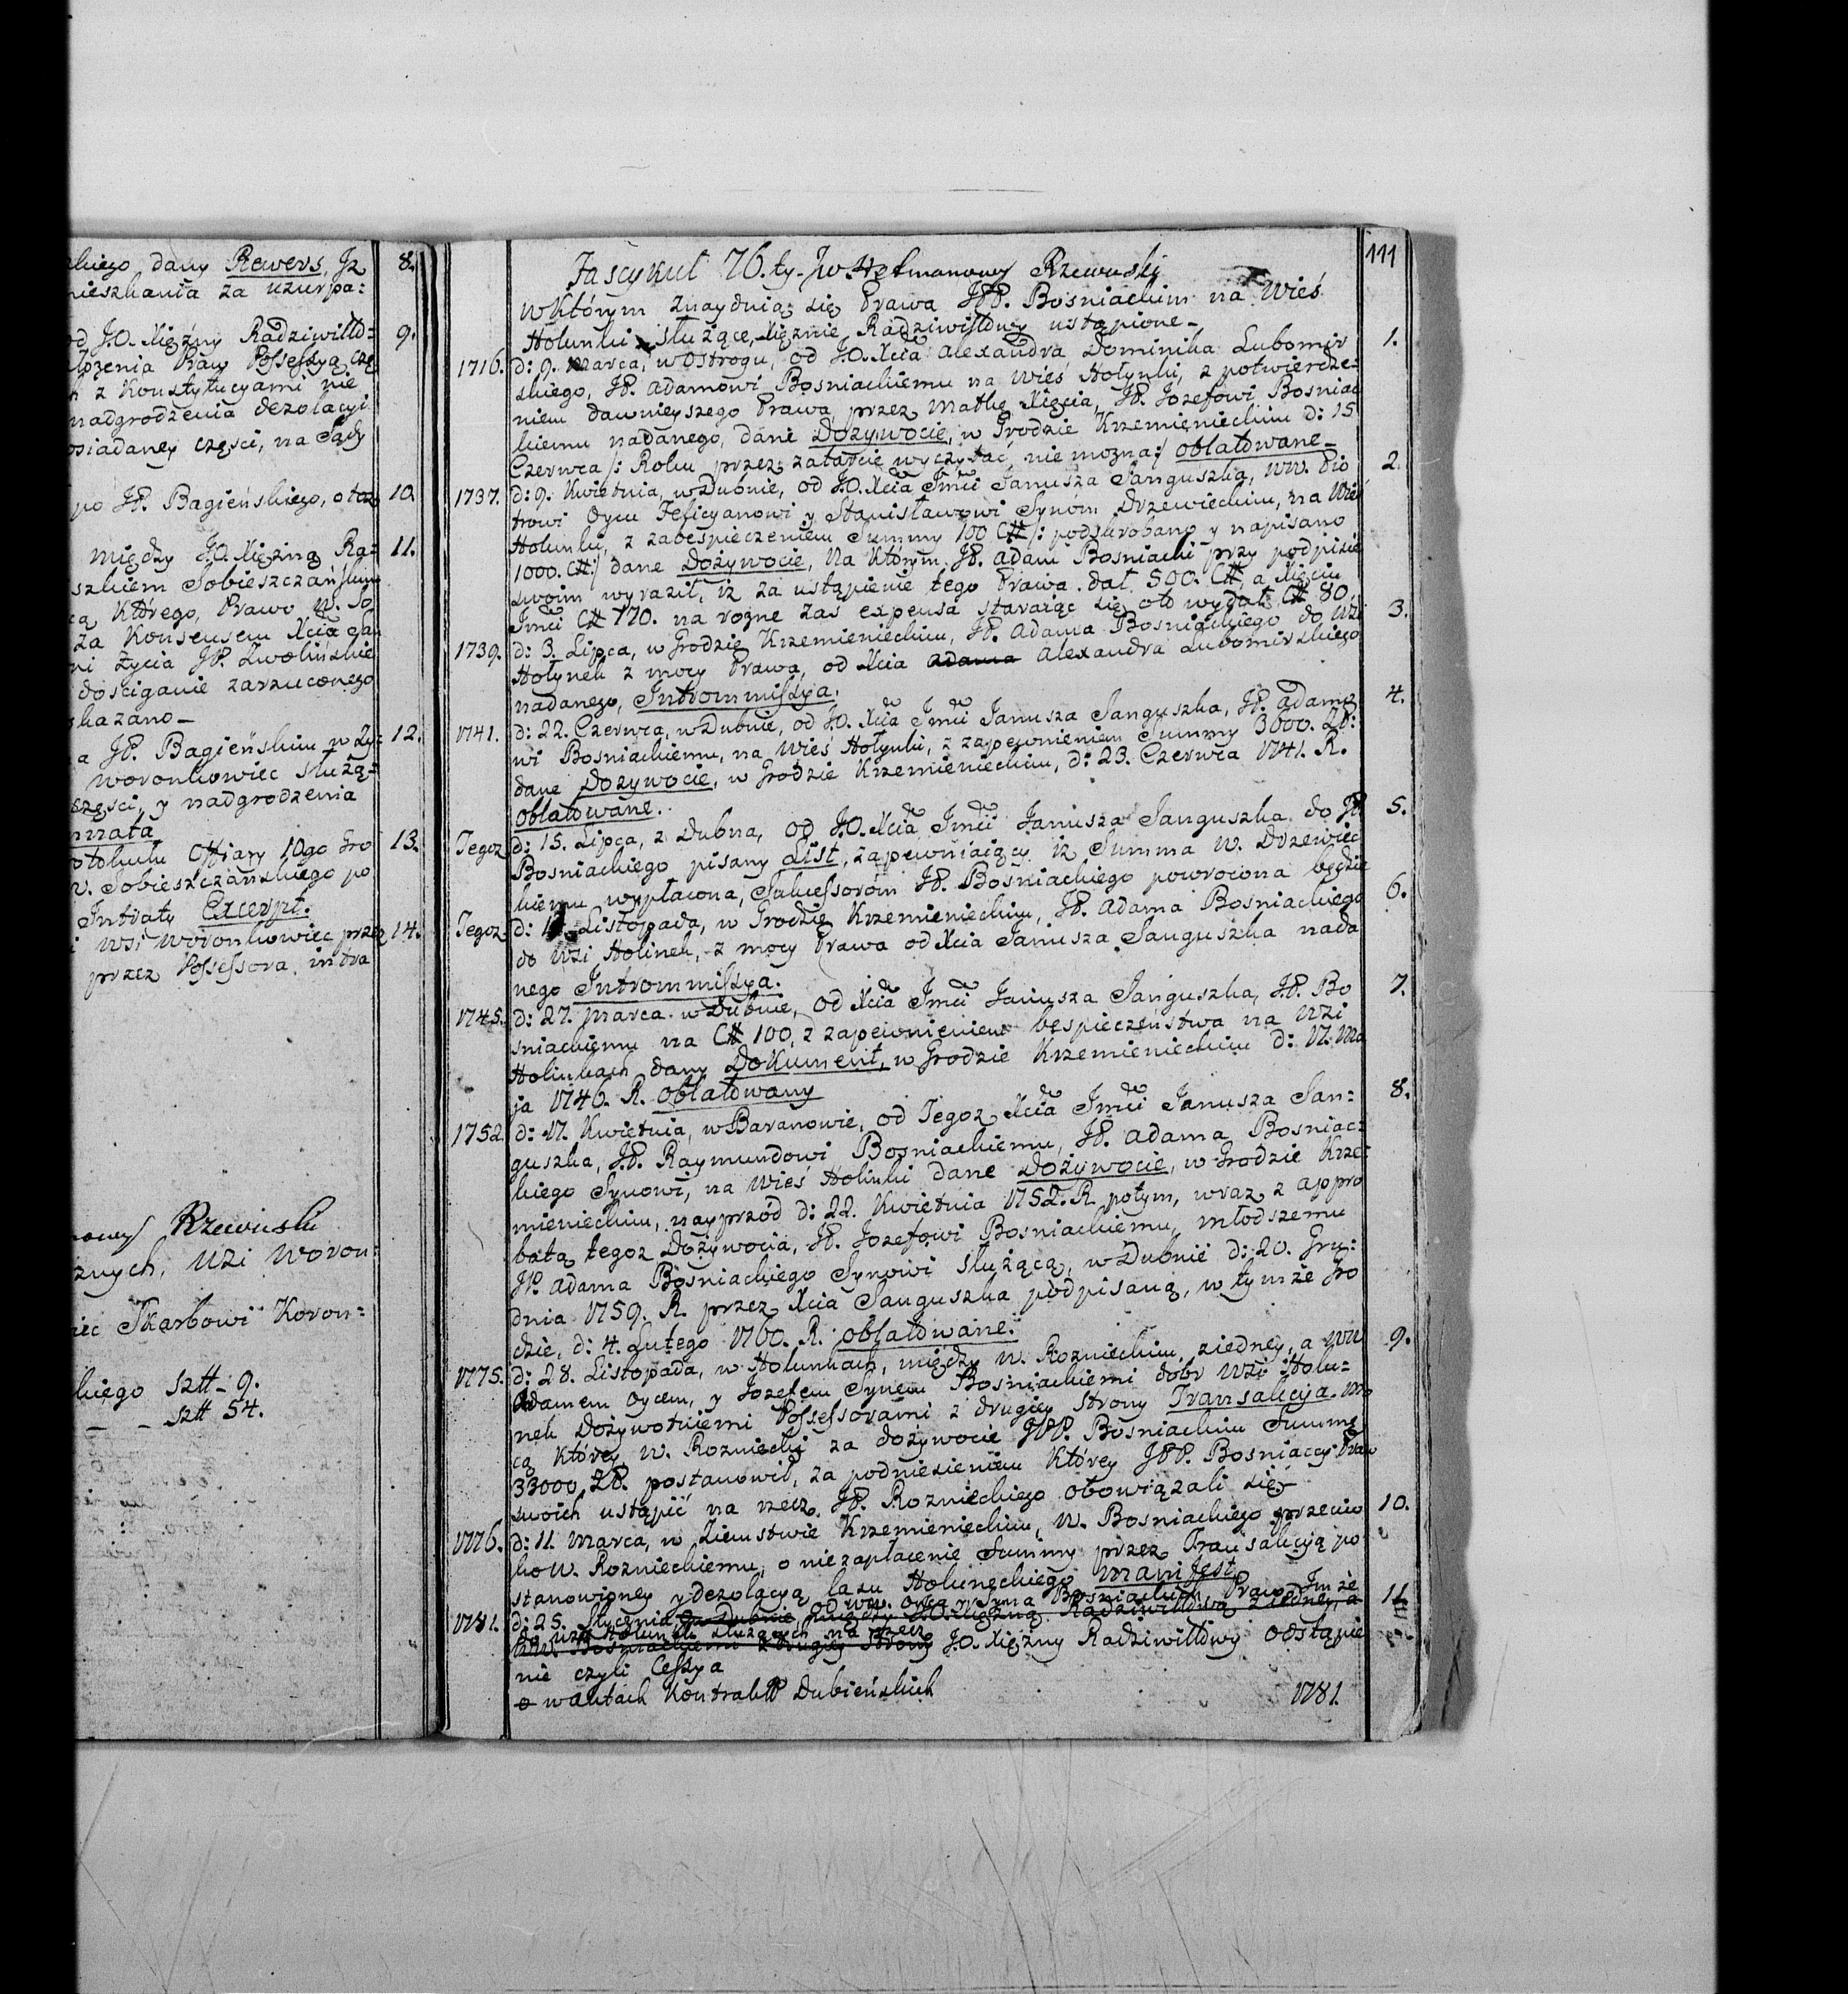 skiego dany Rewers, Jz 8.
mieszkania za uzurpa:
od J.O. Xiężny Radziwiłło= 9.
łożenia Praw Possessyą czę
h z Konstytucyami nie
nadgrodzenia dezolacyi
osiadaney części, na Sądy
po JP. Bagieńskiego, o 10.
między J.O. Xiężną Ra= 11.
szkiem Sobieszczańskim
cą Którego, Prawo W. So
za Konsensem Xcia Jan
ni życia JP. Zwolińskie
dościganie zarzuconego
skazano –
a JP. Bagieńskim w Zy= 12.
Woronkowiec służą=
części, y nadgrodzenia
mata
otokułu Offiary 10go Gro 13.
W. Sobieszczańskiego po
Intraty Excerpt.
i Wsi Woronkowiec przez 14.
przez Possessora, intra
nowy Rzewuski
znych, Wsi Woron=
iec Skarbowi Koron=
kiego sztt – 9.
– – sztt 54.
111
Fascykuł 76.ty. Jw. Hetmanowy Rzewuski
w Którym znaydują się Prawa JPP. Bosniackim na Wieś
Hołunki służące, Xiężnie Radziwiłłowy ustąpione –
1716. d: 9. Marca, w Ostrogu, od J.O. Xcia Alexandra Dominika Lubomir 1.
skiego, JP. Adamowi Bosniackiemu na Wieś Hołynki, z potwierdze=
niem dawnieyszego Prawa, przez Matkę Xięcia, JP. Jozefowi Bosniac
kiemu nadanego, dane Dożywocie, w Grodzie Krzemienieckim d: 15
Czerwca /: Roku przez zatarcie wyczytać nie można :/ oblatowane –
1737. d: 9. Kwietnia, w Dubnie, od J.O. Xcia Jmci Janusza Sanguszka, WW. Pio 2.
trowi Oycu Felicyanowi y Stanisławowi Synom Drzewieckim, na Wieś
Hołunki, z zabespieczeniem Summy 100 C# /: podskrobano y napisano
1000. C# :/ dane Dożywocie, Na Którym JP. Adam Bosniacki przy podpisie
swoim wyraził, iż za ustąpienie tego Prawa dał 500. C#, a Xięciu
Jmci C# 170. na rożne zas expensa staraiąc się oto wydał C# 80.
1739. d: 3. Lipca, w Grodzie Krzemienieckim, JP. Adama Bosniackiego do Wsi 3.
Hołynek z mocy Prawa, od Xcia Adama Alexandra Lubomirskiego
nadanego, Intrommissya.
1741. d: 22. Czerwca, w Dubnie, od J.O. Xcia Jmci Janusza Sanguszka, JP. Adamo 4.
wi Bosniackiemu, na Wieś Hołynki, z zapewnieniem Summy 3000. Zł:
dane Dożywocie, w Grodzie Krzemienieckim, d: 23. Czerwca 1741. R.
oblatowane.
Tegoz d: 15. Lipca, z Dubna, od J.O. Xcia Jmci Janusza Sanguszka do JP. 5.
Bosniackiego pisany List, zapewniaiący iż Summa W. Drzewiec
kiemu wypłacona, Sukcessorom JP. Bosniackiego powrocona będzie
Tegoz d: Listopada, w Grodzie Krzemienieckim, JP. Adama Bosniackiego 6.
do Wsi Holinek, z mocy Prawa od Xcia Janusza Sanguszka nada
nego Intrommissya.
1745. d: 27. Marca w Dubnie, od Xcia Jmci Janusza Sanguszka, JP. Bo 7.
sniackiemu na C# 100, z zapewnieniem bespieczeństwa na Wsi
Holinkach dany Dokument, w Grodzie Krzemienieckim d: 17. Ma
ja 1746. R. oblatowany
1752. d: 17. Kwietnia, w Baranowie, od Tegoz Xcia Jmci Janusza San= 8.
guszka, JP. Raymundowi Bosniackiemu, JP. Adama Bosniac=
kiego Synowi, na Wieś Holinki dane Dożywocie, w Grodzie Krze=
mienieckim, nayprzód d: 22. Kwietnia 1752. R. potym, wraz z appro
batą tegoz Dożywocia, JP. Jozefowi Bosniackiemu, młodszemu
JP. Adama Bosniackiego Synowi służącą, w Dubnie d: 20. Gru=
dnia 1759. R. przez Xcia Sanguszka podpisaną, w tymże Gro
dzie, d: 4. Lutego 1760. R. oblatowane.
1775. d: 28. Listopada, w Hołunkach, między W. Roznieckim ziedney, a WW 9.
Adamem Oycem, y Jozefem Synem Bosniackiemi dobr Wsi Hołu=
nek Dożywotniemi Possessorami z drugiey strony Transakcya. Mo
cą Którey, W. Rozniecki za dożywocie JPP. Bosniackim Summę
33000, Zł. postanowił, za podniesieniem Którey JPP. Bosniaccy Praw
swoich ustąpić na rzecz JP. Roznieckiego obowiązali się –
1776. d: 11. Marca, w Ziemstwie Krzemienieckim, W. Bosniackiego przeciw 10.
ko W. Rozniechiemu, o niezapłacenie Summy przez Transakcyą po
stanowioney y dezolacyą lasu Hołuneckiego Manifest
1781. d: 25. Stycznia w Dubnie od WW. Oyca y Syna Bosniackich Praw Jmże 11.
między J.O. Xiężną Radziwiłłową z iedney, a
do Wsi Hołunek służących na rzecz
Bosniackiemi z drugiey strony J.O. Xiężny Radziwiłłowy odstąpie
nie czyli Cessya
w aktach Kontraktt Dubieńskich 1781.